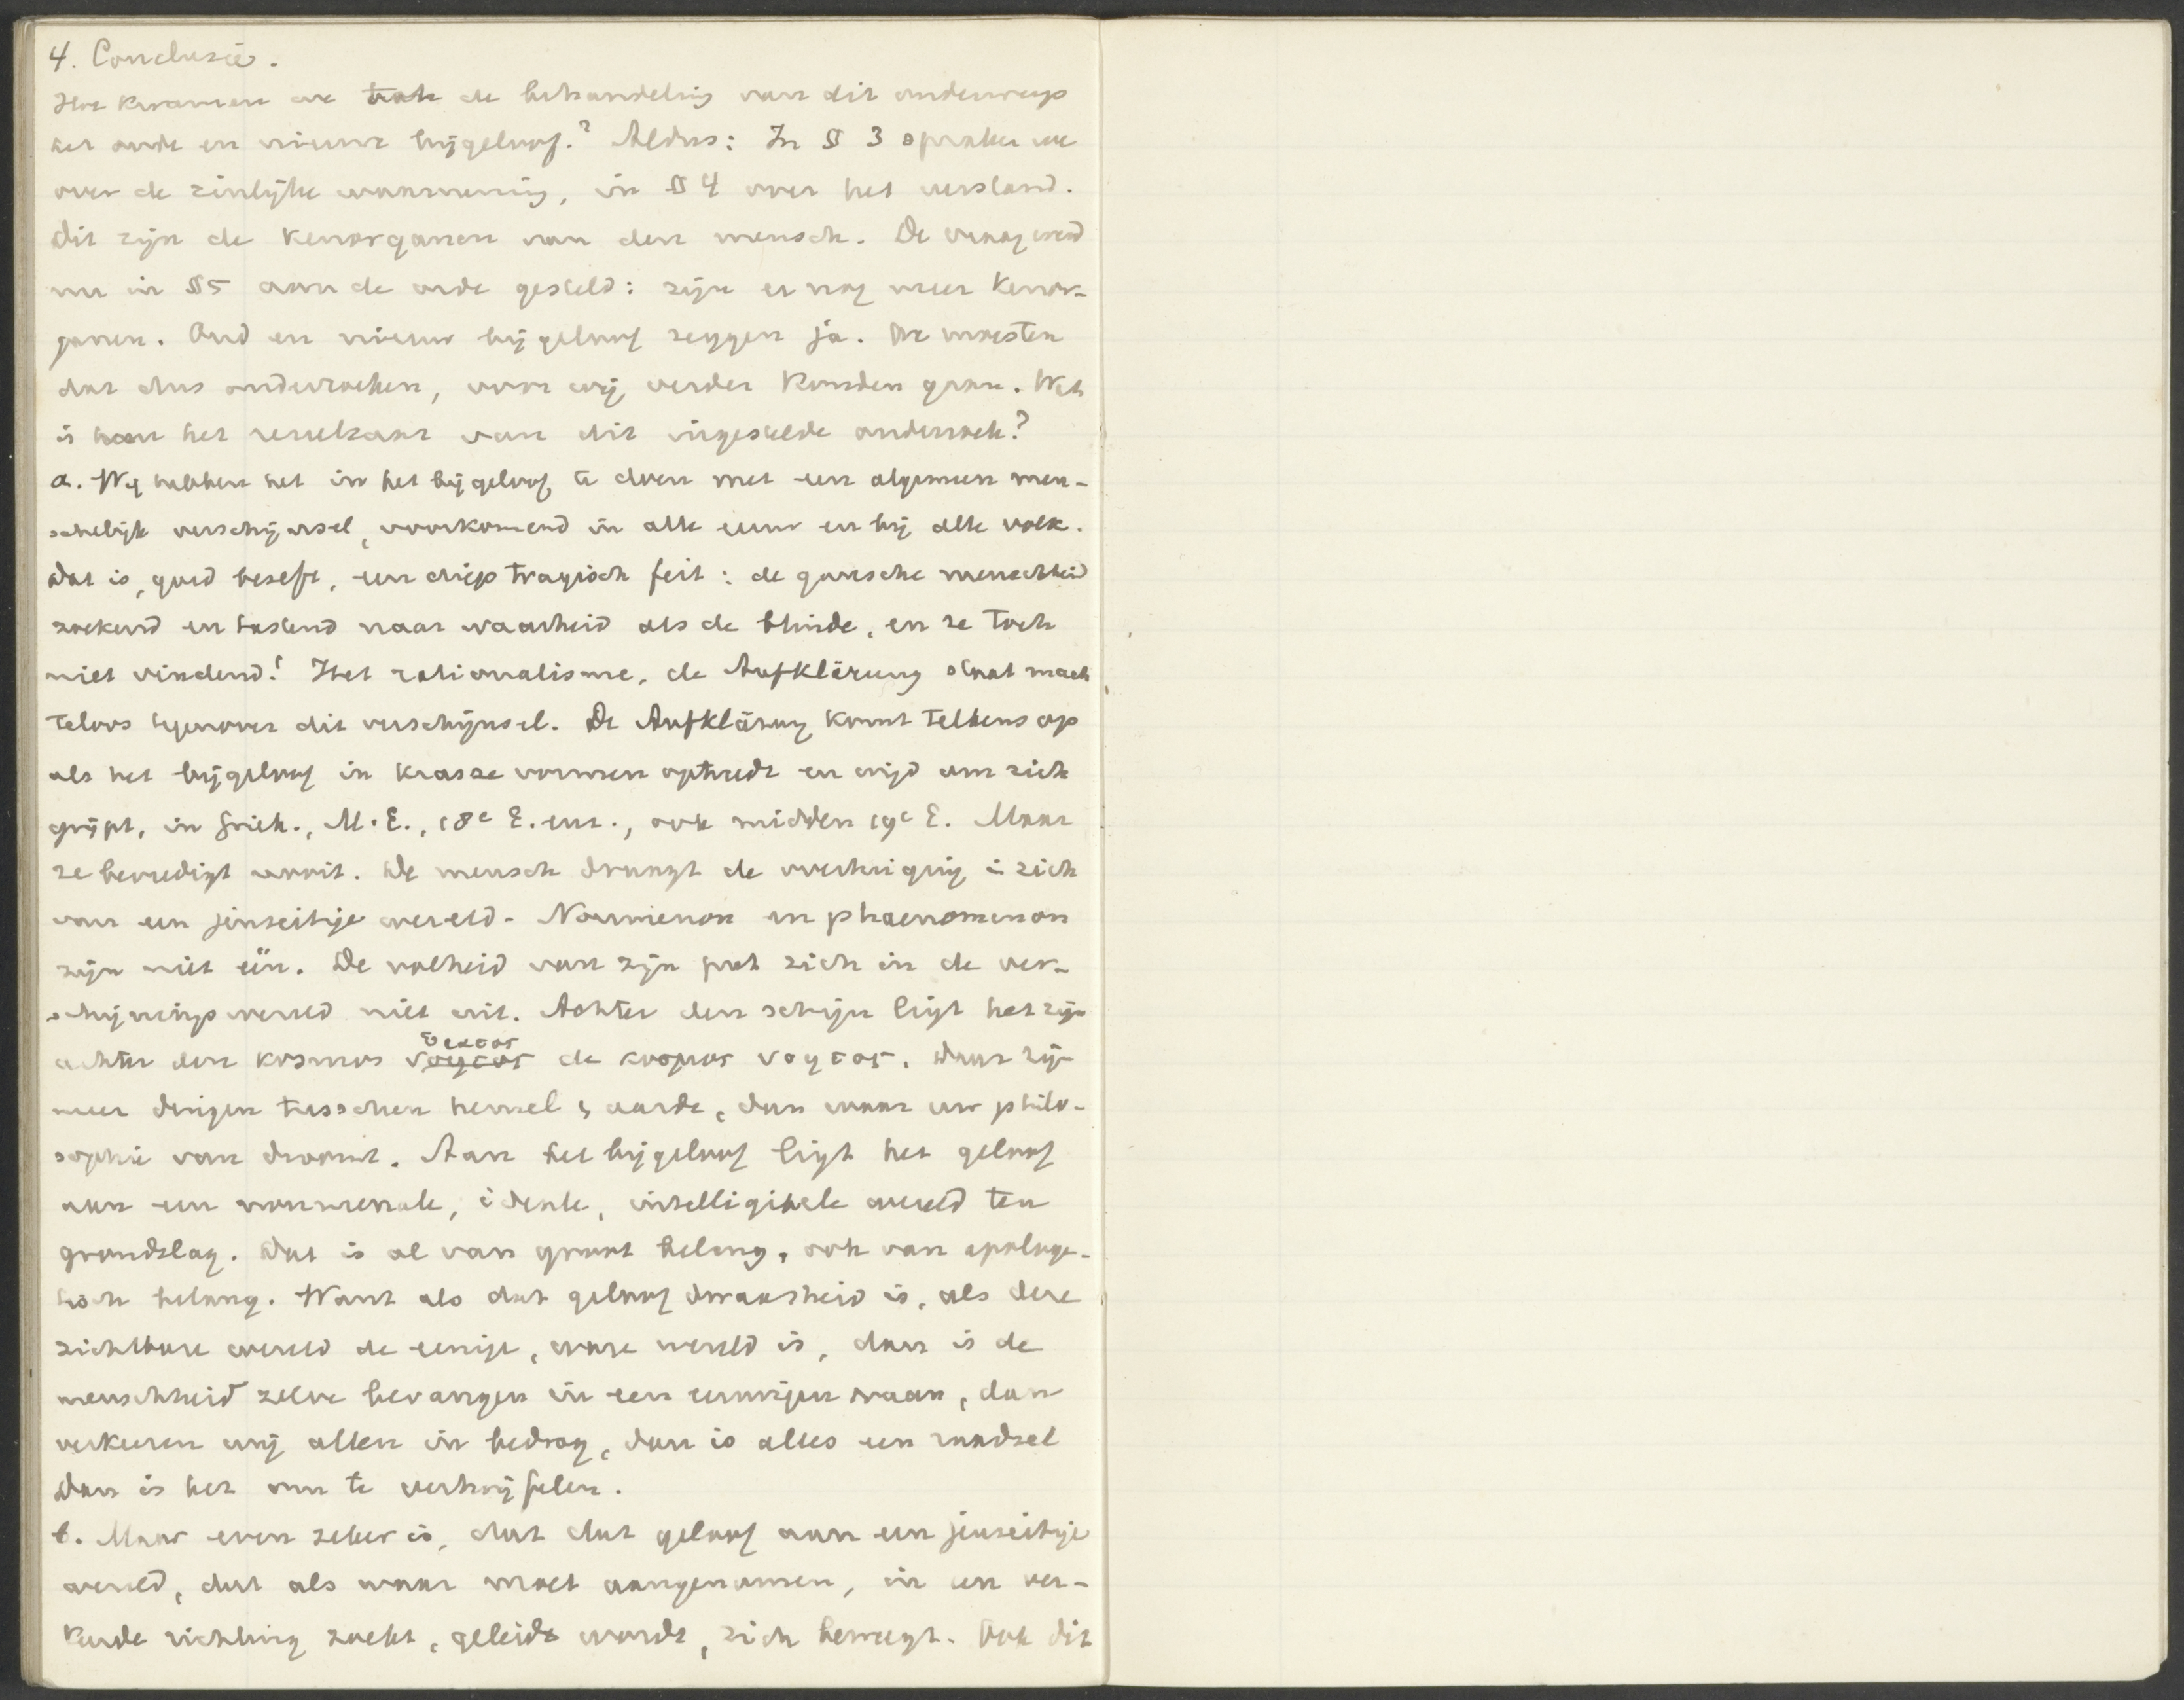 4. Conclusie.
Hoe kwamen we tot de behandeling van dit onderwerp
het oude en nieuwe bijgeloof? Aldus: In § 3 spraken we
over de zinlijke waarneming, in § 4 over het verstand.
Dit zijn de kenorganen van den mensch. De vraag werd
nu in § 5 aan de orde gesteld: zijn er nog meer kenor-
ganen. Oud en nieuw bijgeloof zeggen ja. We moesten
dat dus onderzoeken, voor wij verder konden gaan. Wat
is het resultaat van dit ingestelde onderzoek?
a. Wij hebben het in het bijgeloof te doen met een algemeen men-
schelijk verschijnsel, voorkomend in alle eeuw en bij alle volk.
Dat is, goed beseft, een diep tragisch feit: de gansche menschheid
zoekend en tastend naar waarheid als de blinde, en ze toch
niet vindend! Het rationalisme, de Aufklärung staat mach
teloos tegenover dit verschijnsel. De Aufklärung komt telkens op
als het bijgeloof in krasse vormen optreedt en wijd om zich
grijpt, in Griek., M.E., 18e E. enz., ook midden 19e E. Maar
ze bevredigt nooit. De mensch draagt de overtuiging in zich
van een jenseitige wereld. Noumenon en phaenomenon
zijn niet één. De volheid van zijn gaat zich in de ver-
schijningswereld niet uit. Achter den schijn ligt het zijn
achter den kosmos νοητος ορατος de κοσμος νοητος. Daar zijn
meer dingen tusschen hemel & aarde, dan waar uw philo-
sophie van droomt. Aan het bijgeloof ligt het geloof
aan een noumenale, ideale, intelligibele wereld ten
grondslag. Dat is al van groot belang, ook van apologe-
tisch belang. Want als dat geloof dwaasheid is, als deze
zichtbare wereld de eenige, ware wereld is, dan is de
menschheid zelve bevangen in een eeuwigen waan, dan
verkeeren wij allen in bedrog, dan is alles een raadsel
dan is het om te vertwijfelen.
b. Maar even zeker is, dat dat geloof aan een jenseitige
wereld, dat als waar moet aangenomen, in een ver-
keerde richting zoekt, geleid wordt, zich beweegt. Ook dit